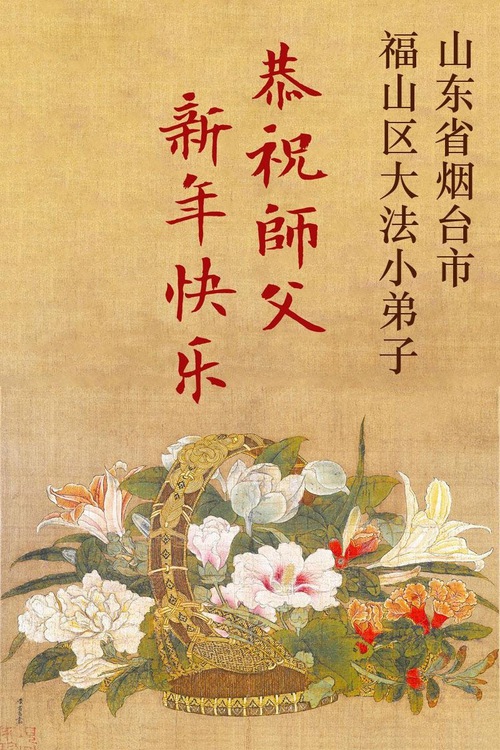 山东省烟台市
福山区大法小弟子
恭祝師父
新年快乐